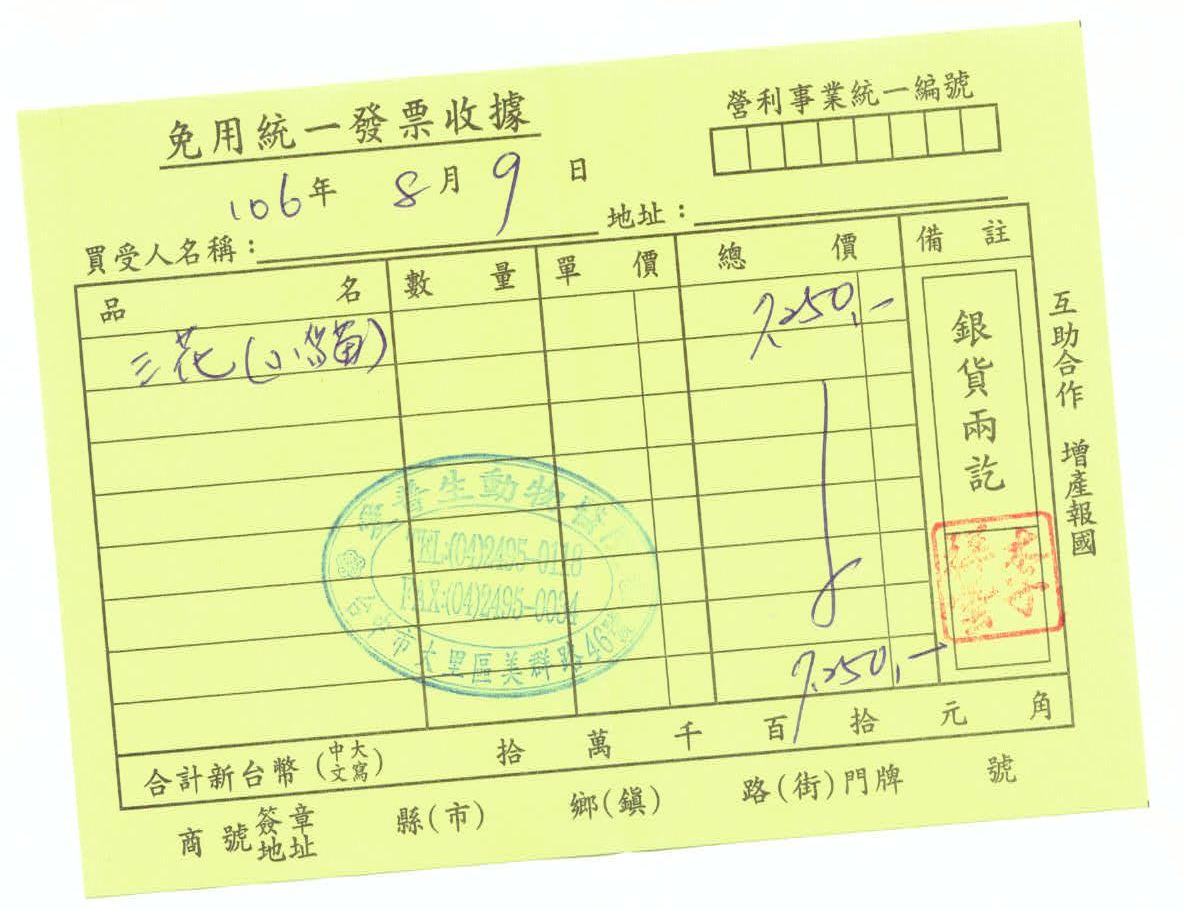 免用統一發票收據
營利事業統一編號
106年 8月 9日
買受人名稱： 地址：
品名 數量 單價 總價 備註
三花(小貓) 7,250,-
銀貨兩訖
互助合作 增產報國
生動物
TEL:(04)2495-0118
FAX:(04)2495-0034
台中市大里區美群路46號
7,250,-
合計新台幣(中文大寫) 拾 萬 千 百 拾 元 角
商號簽章地址 縣(市) 鄉(鎮) 路(街)門牌 號